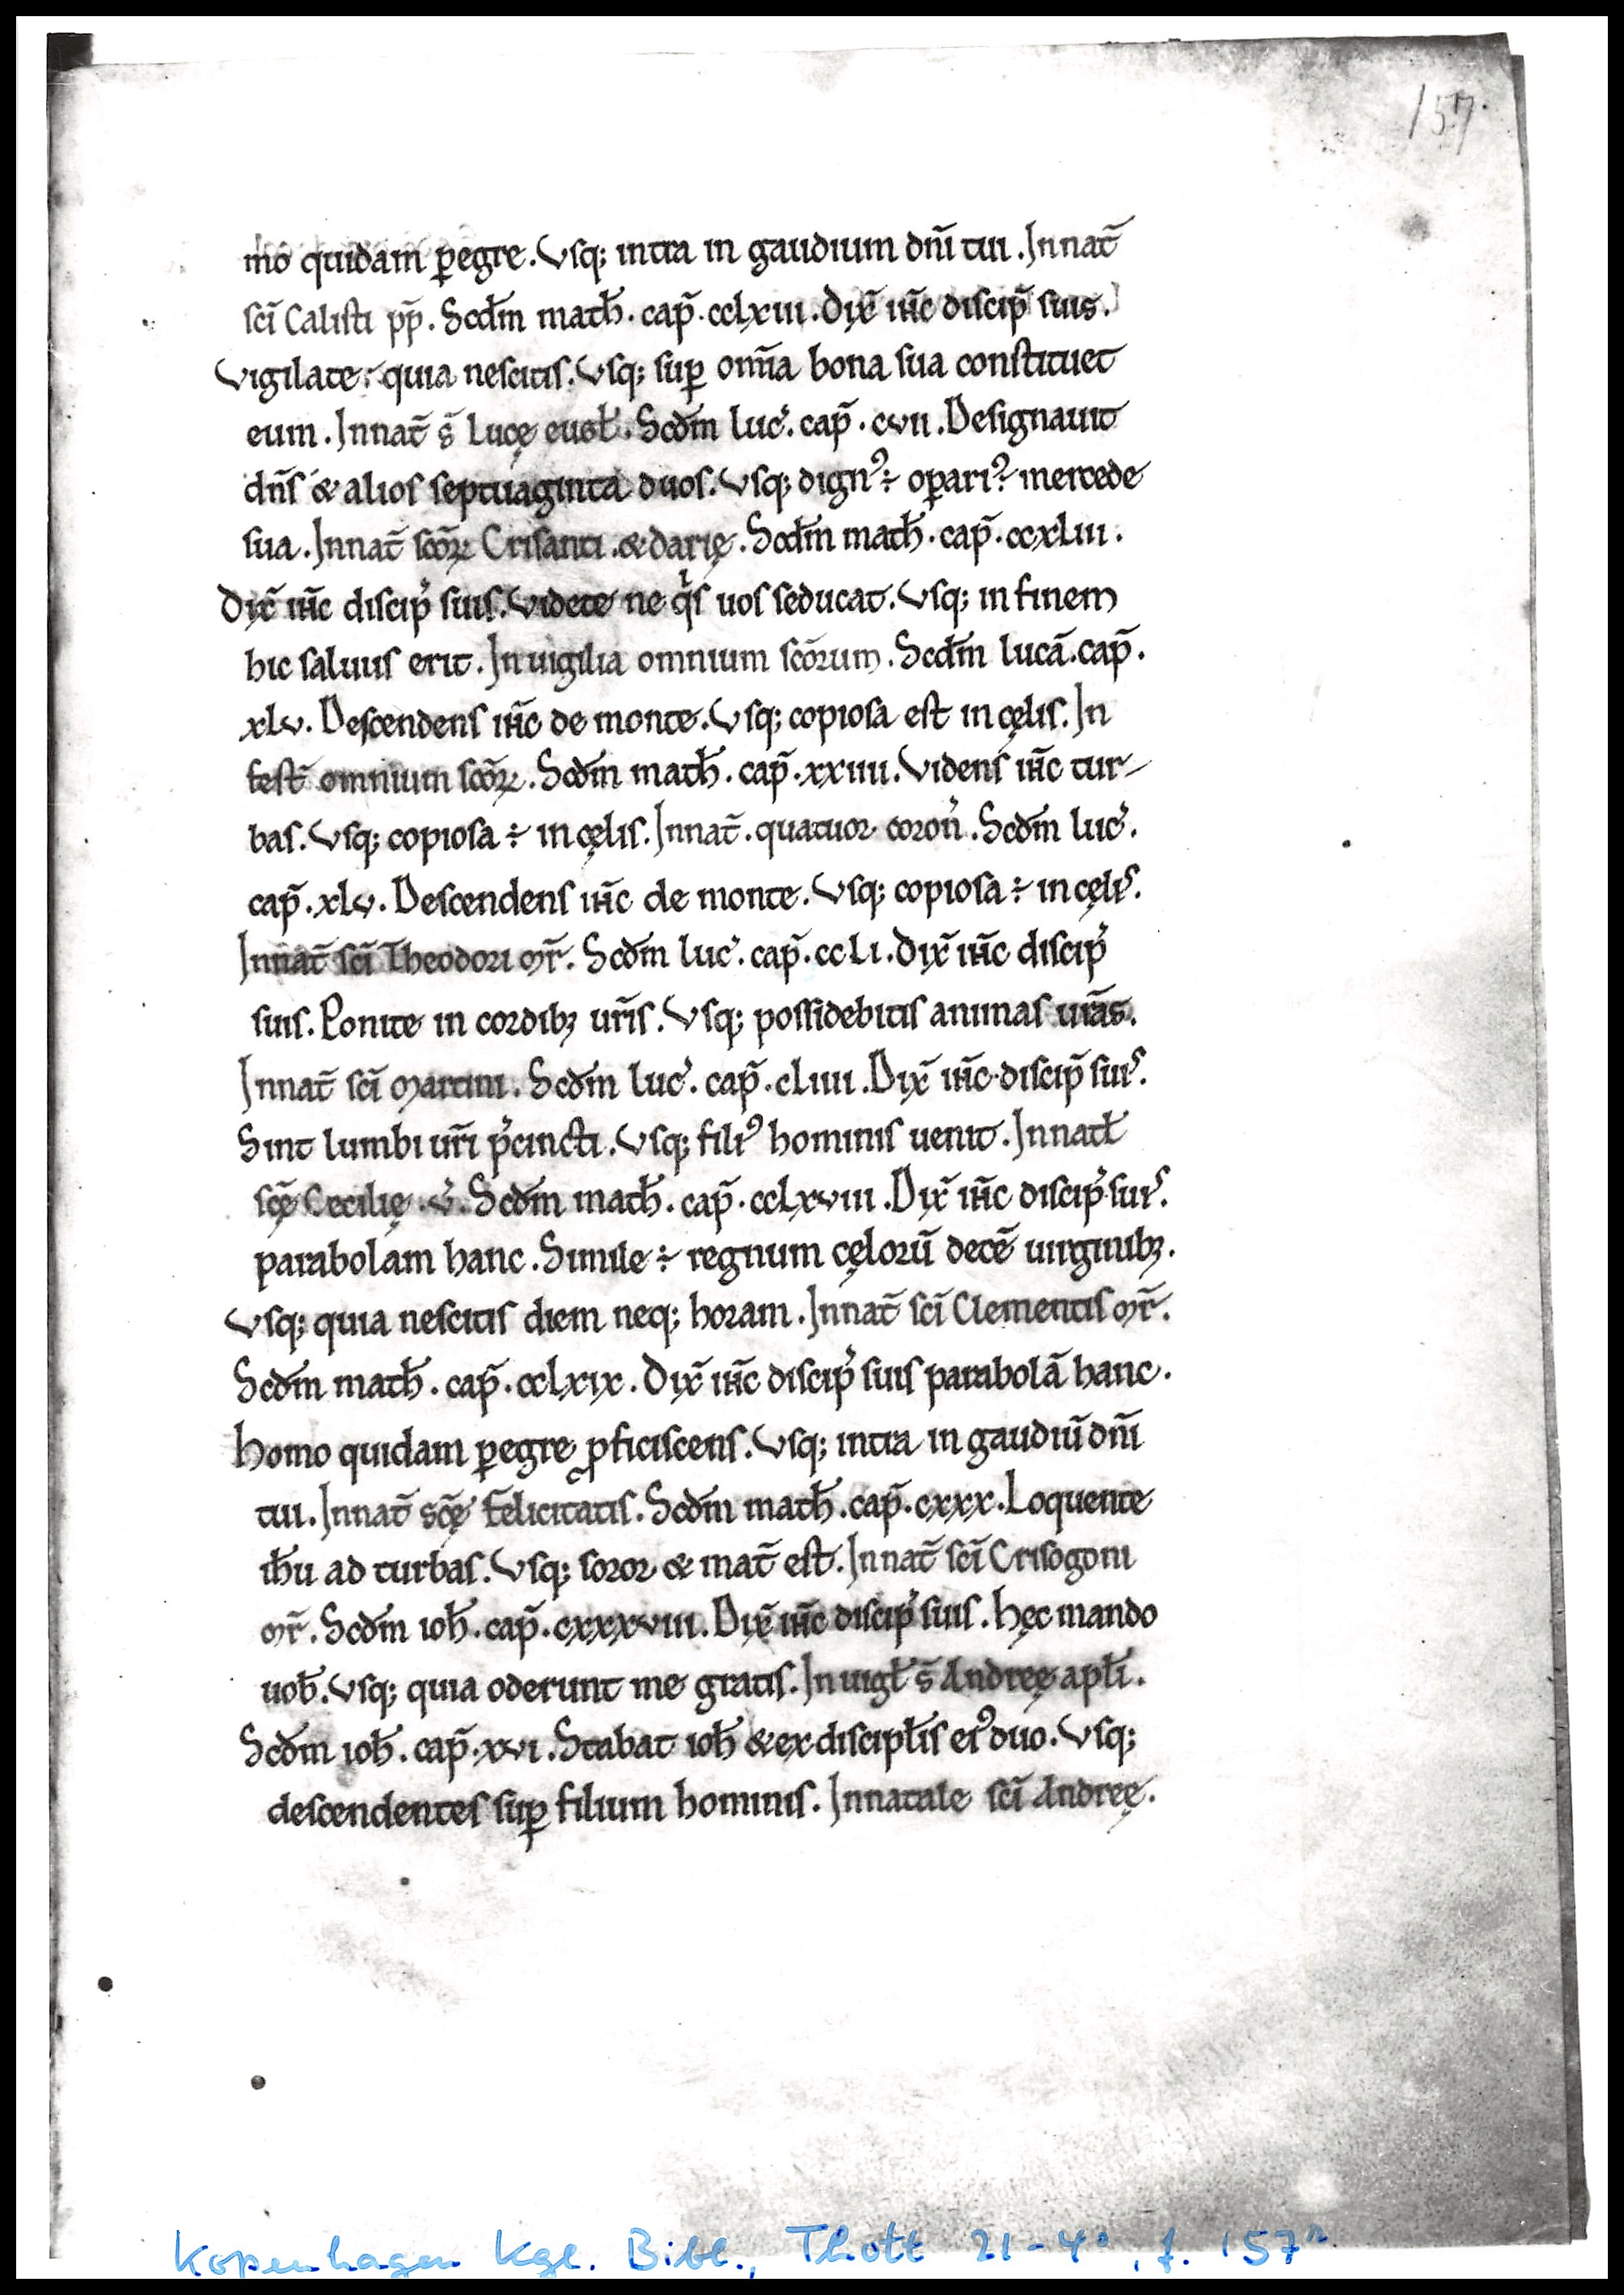 157.
mo quidam p̱egre. Vsq; intra in gaudium dn̄i tui. Innat̄
sc̄i Calisti pp̄. Scd̄m math̄. cap̄. cclxiii. Dix̄ ih̄c discip̄ suis.
Vigilate. quia nescitis. Vsq; sup̱ om̄ia bona sua constituet
eum. Innat̄ s̄ Lucę eugł. Scd̄m luc̓. cap̄. cvii. Designauit
dn̄s & alios septuaginta duos. Vsq; dignꝰ ÷ op̱ariꝰ mercede
sua. Innat̄ sc̄oꝝ Crisanti. & darię. Scd̄m math̄. cap̄. ccxliii.
Dix̄ ih̄c discip̓ suis. Videte ne qͥs uos seducat. Vsq; in finem
hic saluus erit. In uigilia omnium sc̄orum. Scd̄m lucā. cap̄.
xlv. Descendens ih̄c de monte. Vsq; copiosa est in cęlis. In
fest̄ omnium sc̄oꝝ. Scd̄m math̄. cap̄. xxiiii. Videns ih̄c tur-
bas. Vsq; copiosa ÷ in cęlis. Innat̄. quatuor coron̓. Scd̄m luc̓.
cap̄. xlv. Descendens ih̄c de monte. Vsq; copiosa ÷ in cęlis.
Innat̄ sc̄i Theodori mr̄. Scd̄m luc̓. cap̄. ccli. Dix̄ ih̄c discip̓
suis. Ponite in cordibꝫ ur̄is. Vsq; possidebitis animas ur̄as.
Innat̄ sc̄i Martini. Scd̄m luc̓. cap̄. cliiii. Dix̄ ih̄c discip̄ suis.
Sint lumbi ur̄i p̓cincti. Vsq; filiꝰ hominis uenit. Innatł
sc̄ę Cecilię. v̓. Scd̄m math̄. cap̄. cclxviii. Dix̄ ih̄c discip̓ suis.
parabolam hanc. Simile ÷ regnum cęlorū decē uirginibꝫ.
Vsq; quia nescitis diem neq; horam. Innat̄ sc̄i Clementis mr̄.
Scd̄m math̄. cap̄. cclxix. Dix̄ ih̄c discip̓ suis parabolā hanc.
Homo quidam p̱egre ꝓficiscens. Vsq; intra in gaudiū dn̄i
tui. Innat̄ sc̄ę Felicitatis. Scd̄m math̄. cap̄. cxxx. Loquente
ih̄u ad turbas. Vsq; soror & mat̄ est. Innat̄ sc̄i Crisogoni
mr̄. Scd̄m ioh̄. cap̄. cxxxviii. Dix̄ ih̄c discip̓ suis. Hęc mando
uob̄. Vsq; quia oderunt me gratis. In uigł s̄ Andreę apłi.
Scd̄m ioh̄. cap̄. xvi. Stabat ioh̄ & ex discipłis eiꝰ duo. Vsq;
descendentes sup̱ filium hominis. Innatale sc̄i Andreę.
Kopenhagen Kgl. Bibl., Thott 21-4°, f. 157r